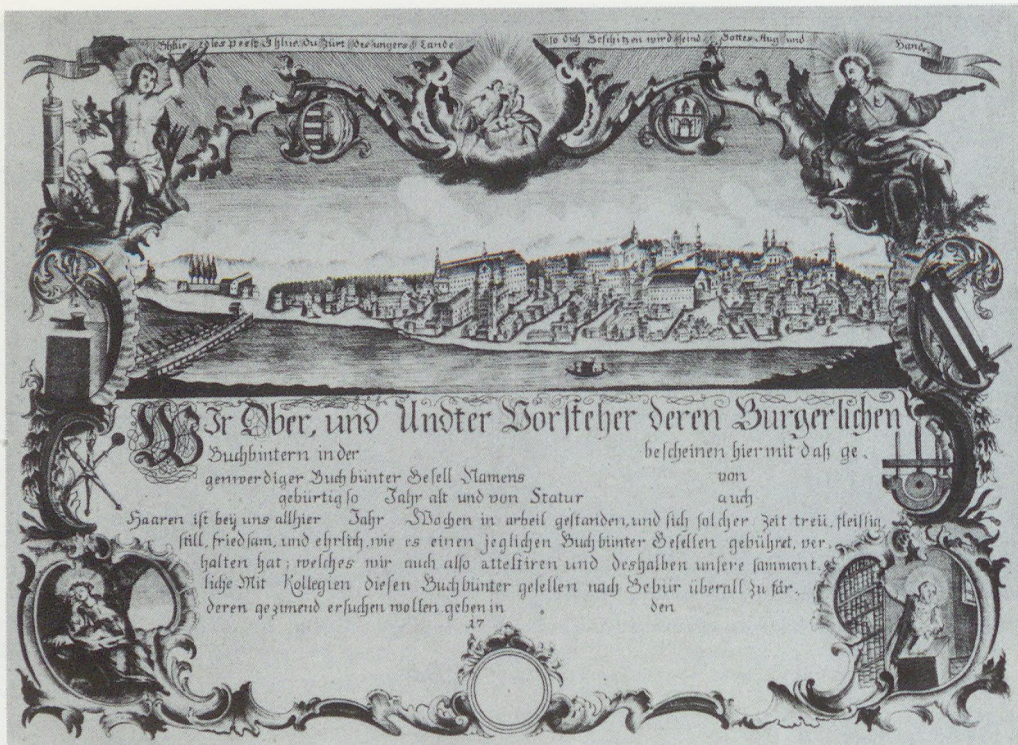 dich Beschitzen wird seind Gottes Aug und Hande.
WIr Ober, und Undter Vorsteher deren Burgerlichen
Buchbintern in der bescheinen hiermit daß ge-
genwerdiger Buchbünter Gesell Namens von
gebürtig so Jahr alt und von Statur auch
Haaren ist beÿ uns allhier Jahr Wochen in arbeit gestanden, und sich solcher Zeit treü, fleissig,
still, friedsam, und ehrlich, wie es einen jeglichen Buchbünter Gesellen gebühret, ver-
halten hat; welches wir auch also attestiren und deshalben unsere samment-
liche Mit Kollegien diesen Buchbünter gesellen nach Gebür überall zu für-
deren gezimend ersuchen wollen geben in den
17